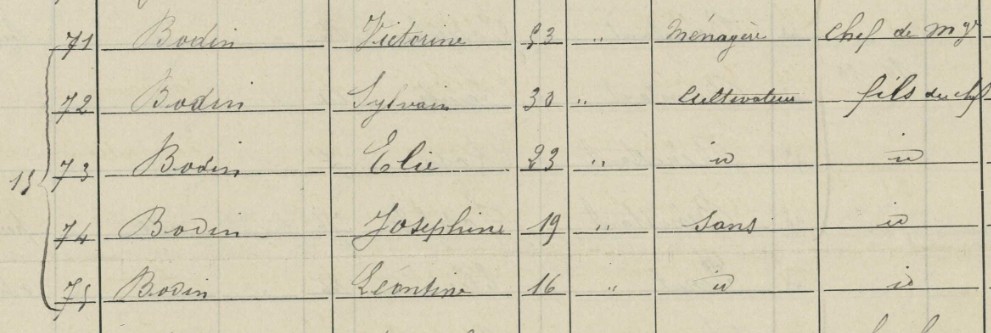 71 Bodin Victorine 53 " Ménagère Chef de mge
72 Bodin Sylvain 30 " Cultivateur fils du chef
15 73 Bodin Elie 23 " id id
74 Bodin Joséphine 19 " Sans id
75 Bodin Léontine 16 " id id